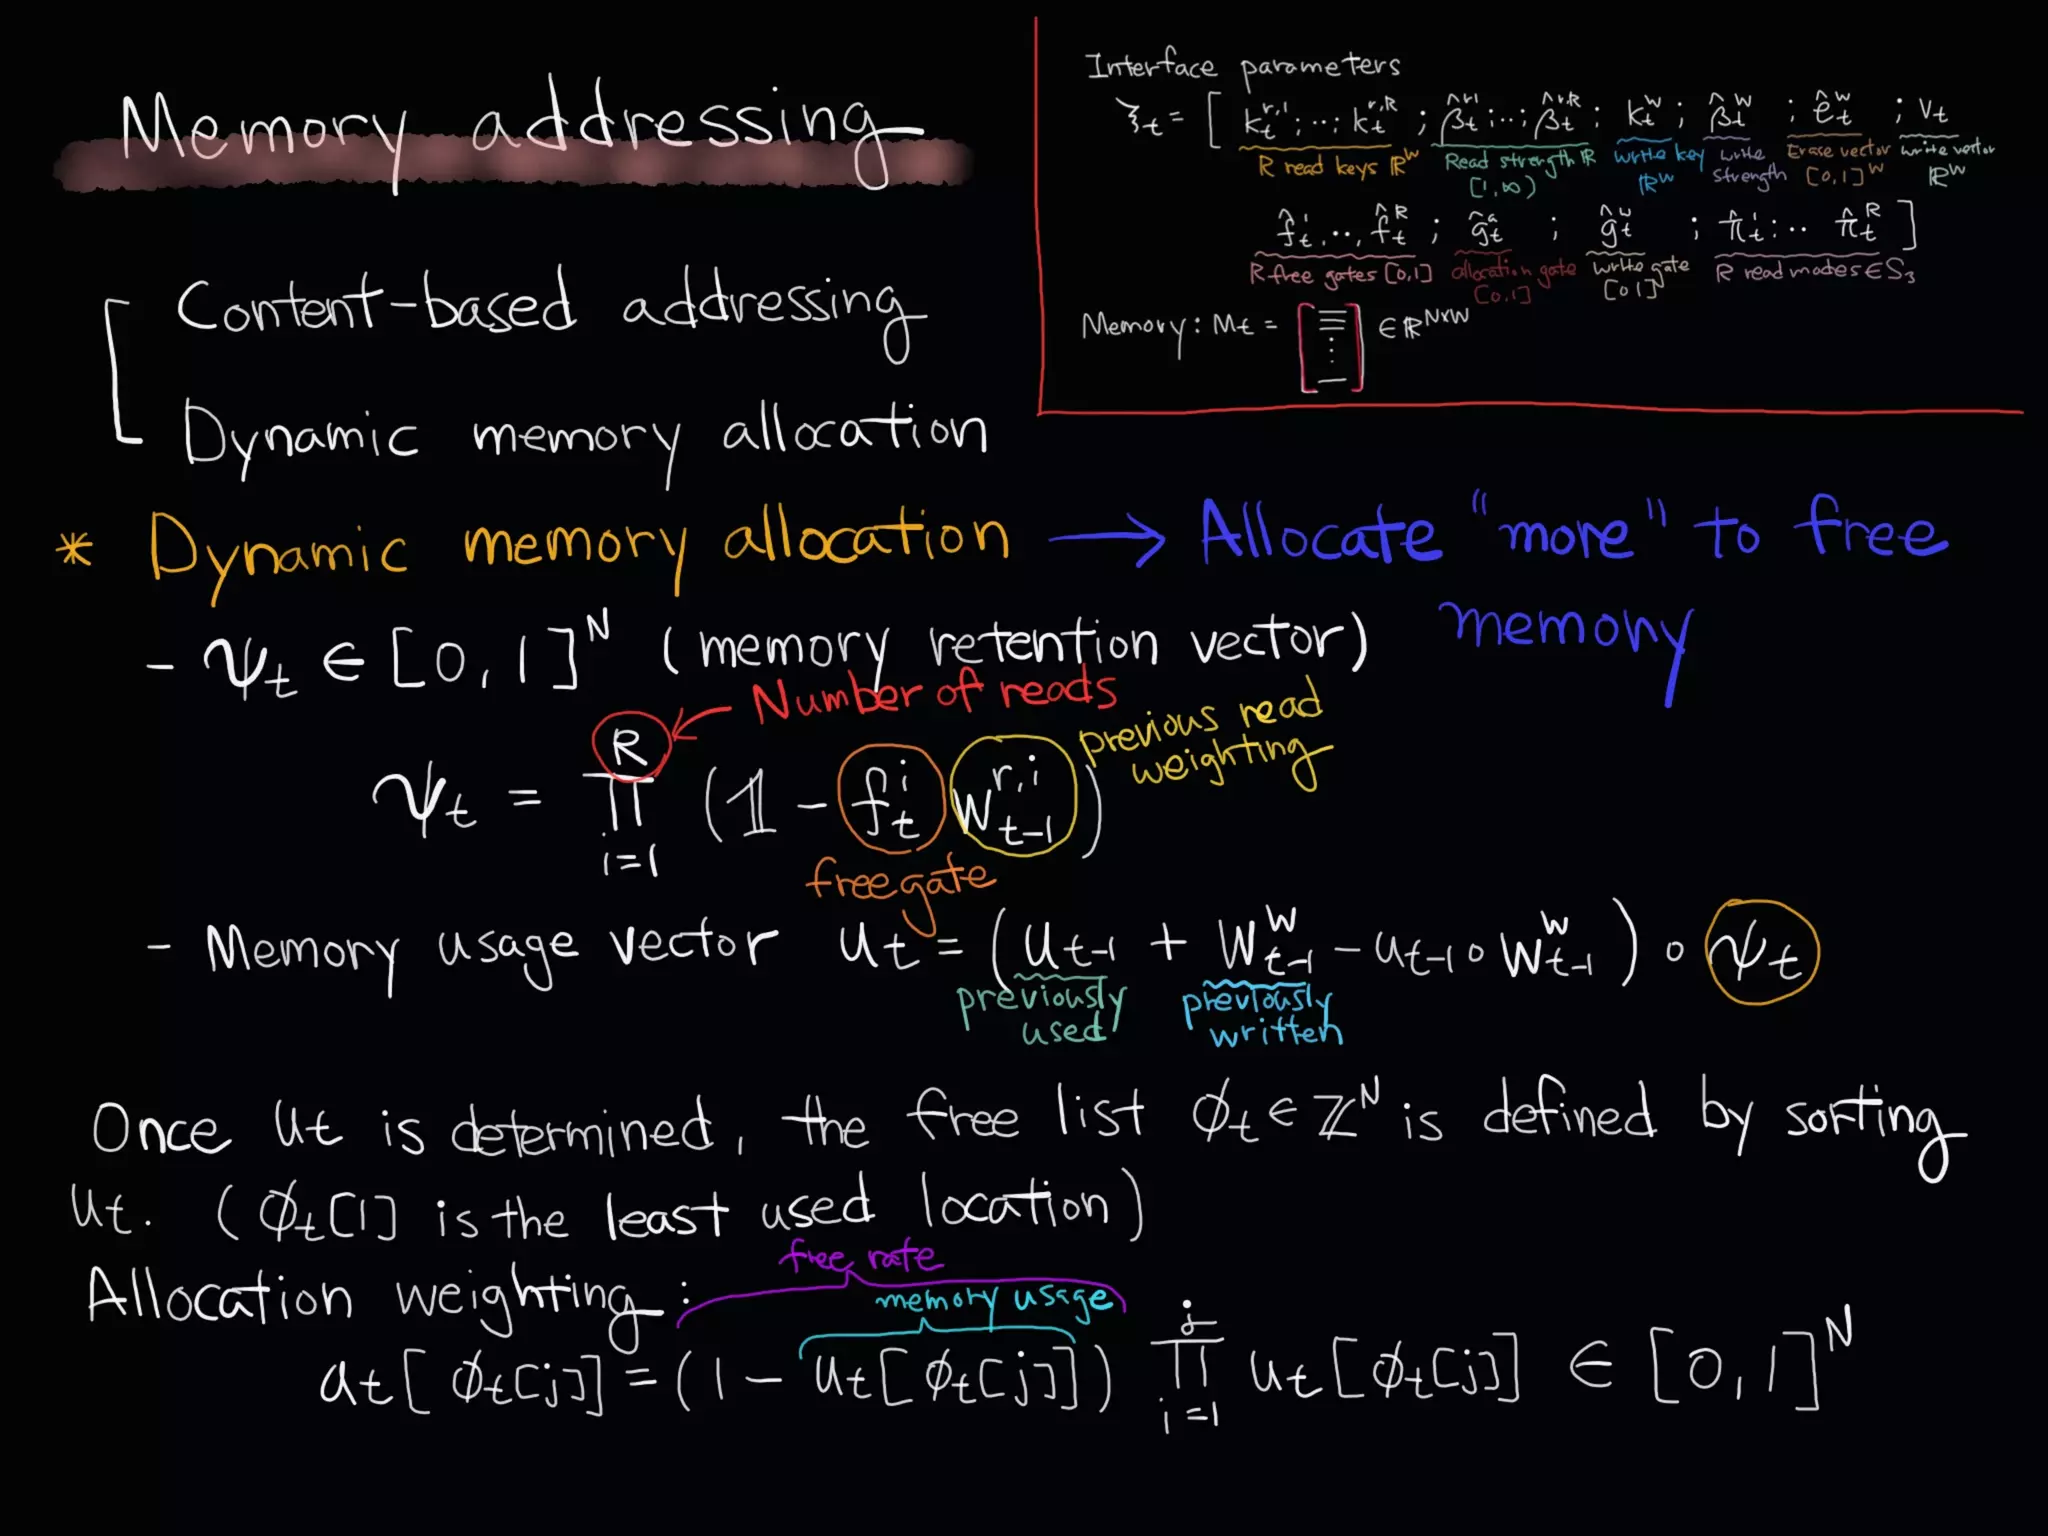 Memory addressing
Content-based addressing
Dynamic memory allocation
Interface parameters
ξt = [ kt^r,1 ; ‥ ; kt^r,R ; β̂t^r,1 ; ‥ ; β̂t^r,R ; kt^w ; β̂t^w ; êt^w ; vt
R read keys ℝ^W Read strength ℝ write key write Erase vector write vector
[1,∞) ℝ^W strength [0,1]^W ℝ^W
f̂t^1 ‥, f̂t^R ; ĝt^a ; ĝt^w ; π̂t^1 : ‥ π̂t^R ]
R free gates [0,1] allocation gate write gate R read modes ∈ S3
[0,1] [0 1]
Memory : Mt = [ ] ∈ ℝ^N×W
* Dynamic memory allocation → Allocate "more" to free
memory
- ψt ∈ [0,1]^N (memory retention vector)
Number of reads
previous read
weighting
ψt = ∏_{i=1}^R (𝟙 - ft^i w_{t-1}^{r,i})
free gate
- Memory usage vector ut = (ut-1 + w_{t-1}^w - ut-1 ∘ w_{t-1}^w) ∘ ψt
previously previously
used written
Once ut is determined, the free list ϕt ∈ ℤ^N is defined by sorting
ut. (ϕt[1] is the least used location)
free rate
Allocation weighting :
memory usage
at[ϕt[j]] = (1 - ut[ϕt[j]]) ∏_{i=1}^j ut[ϕt[j]] ∈ [0,1]^N